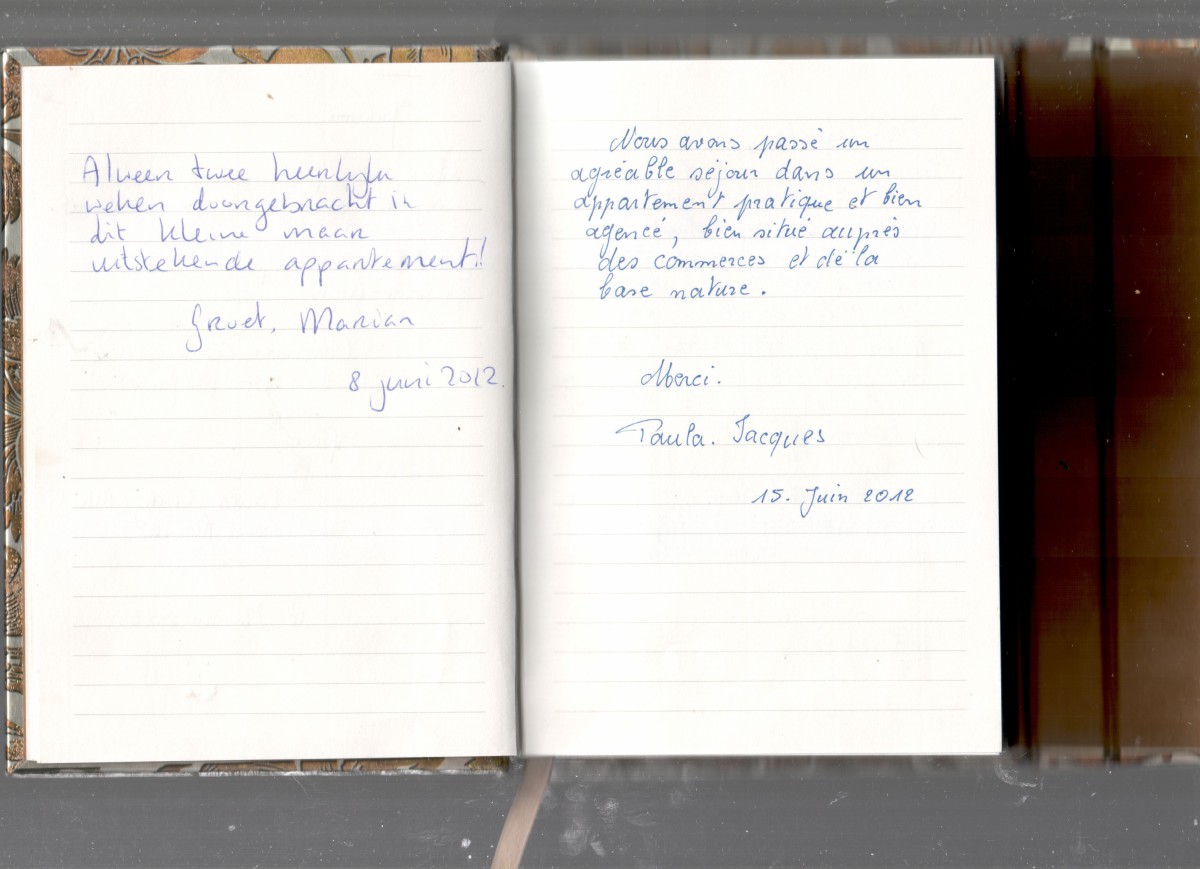 Alweer twee heerlijke
weken doorgebracht in
dit kleine maar
uitstekende appartement!
Groet, Marian
8 juni 2012.
Nous avons passé un
agréable séjour dans un
appartement pratique et bien
agencé, bien situé auprès
des commerces et de la
base nature.
Merci.
Paula. Jacques
15. Juin 2012